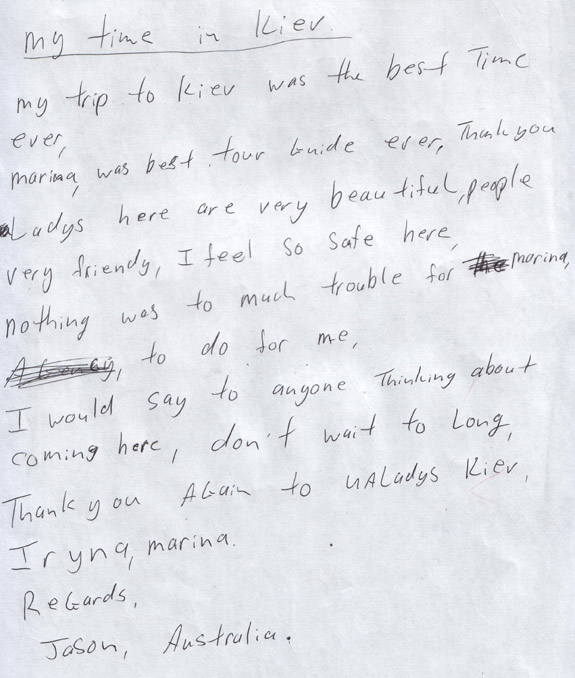 my time in Kiev.
my trip to Kiev was the best Time
ever,
marina, was best tour Guide ever, Thank you
Ladys here are very beautiful, people
very friendy, I feel so safe here,
nothing was to much trouble for the marina,
Agency, to do for me,
I would say to anyone Thinking about
coming here, don't wait to Long,
Thank you AGain to UALadys Kiev,
Iryna, marina.
ReGards,
Jason, Australia.